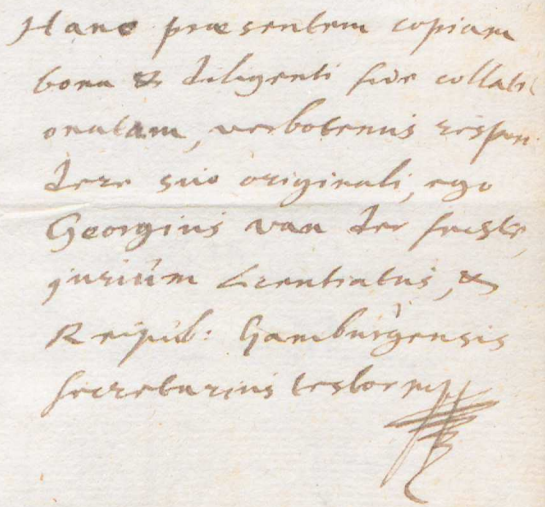 Hanc præsentem copiam
bona & diligenti fide collati
onatam, verbotenus respon
dere suo originali, ego
Georgius van der
jurium Licentiatus, &
Reipub: Hamburgensis
secretarius testor